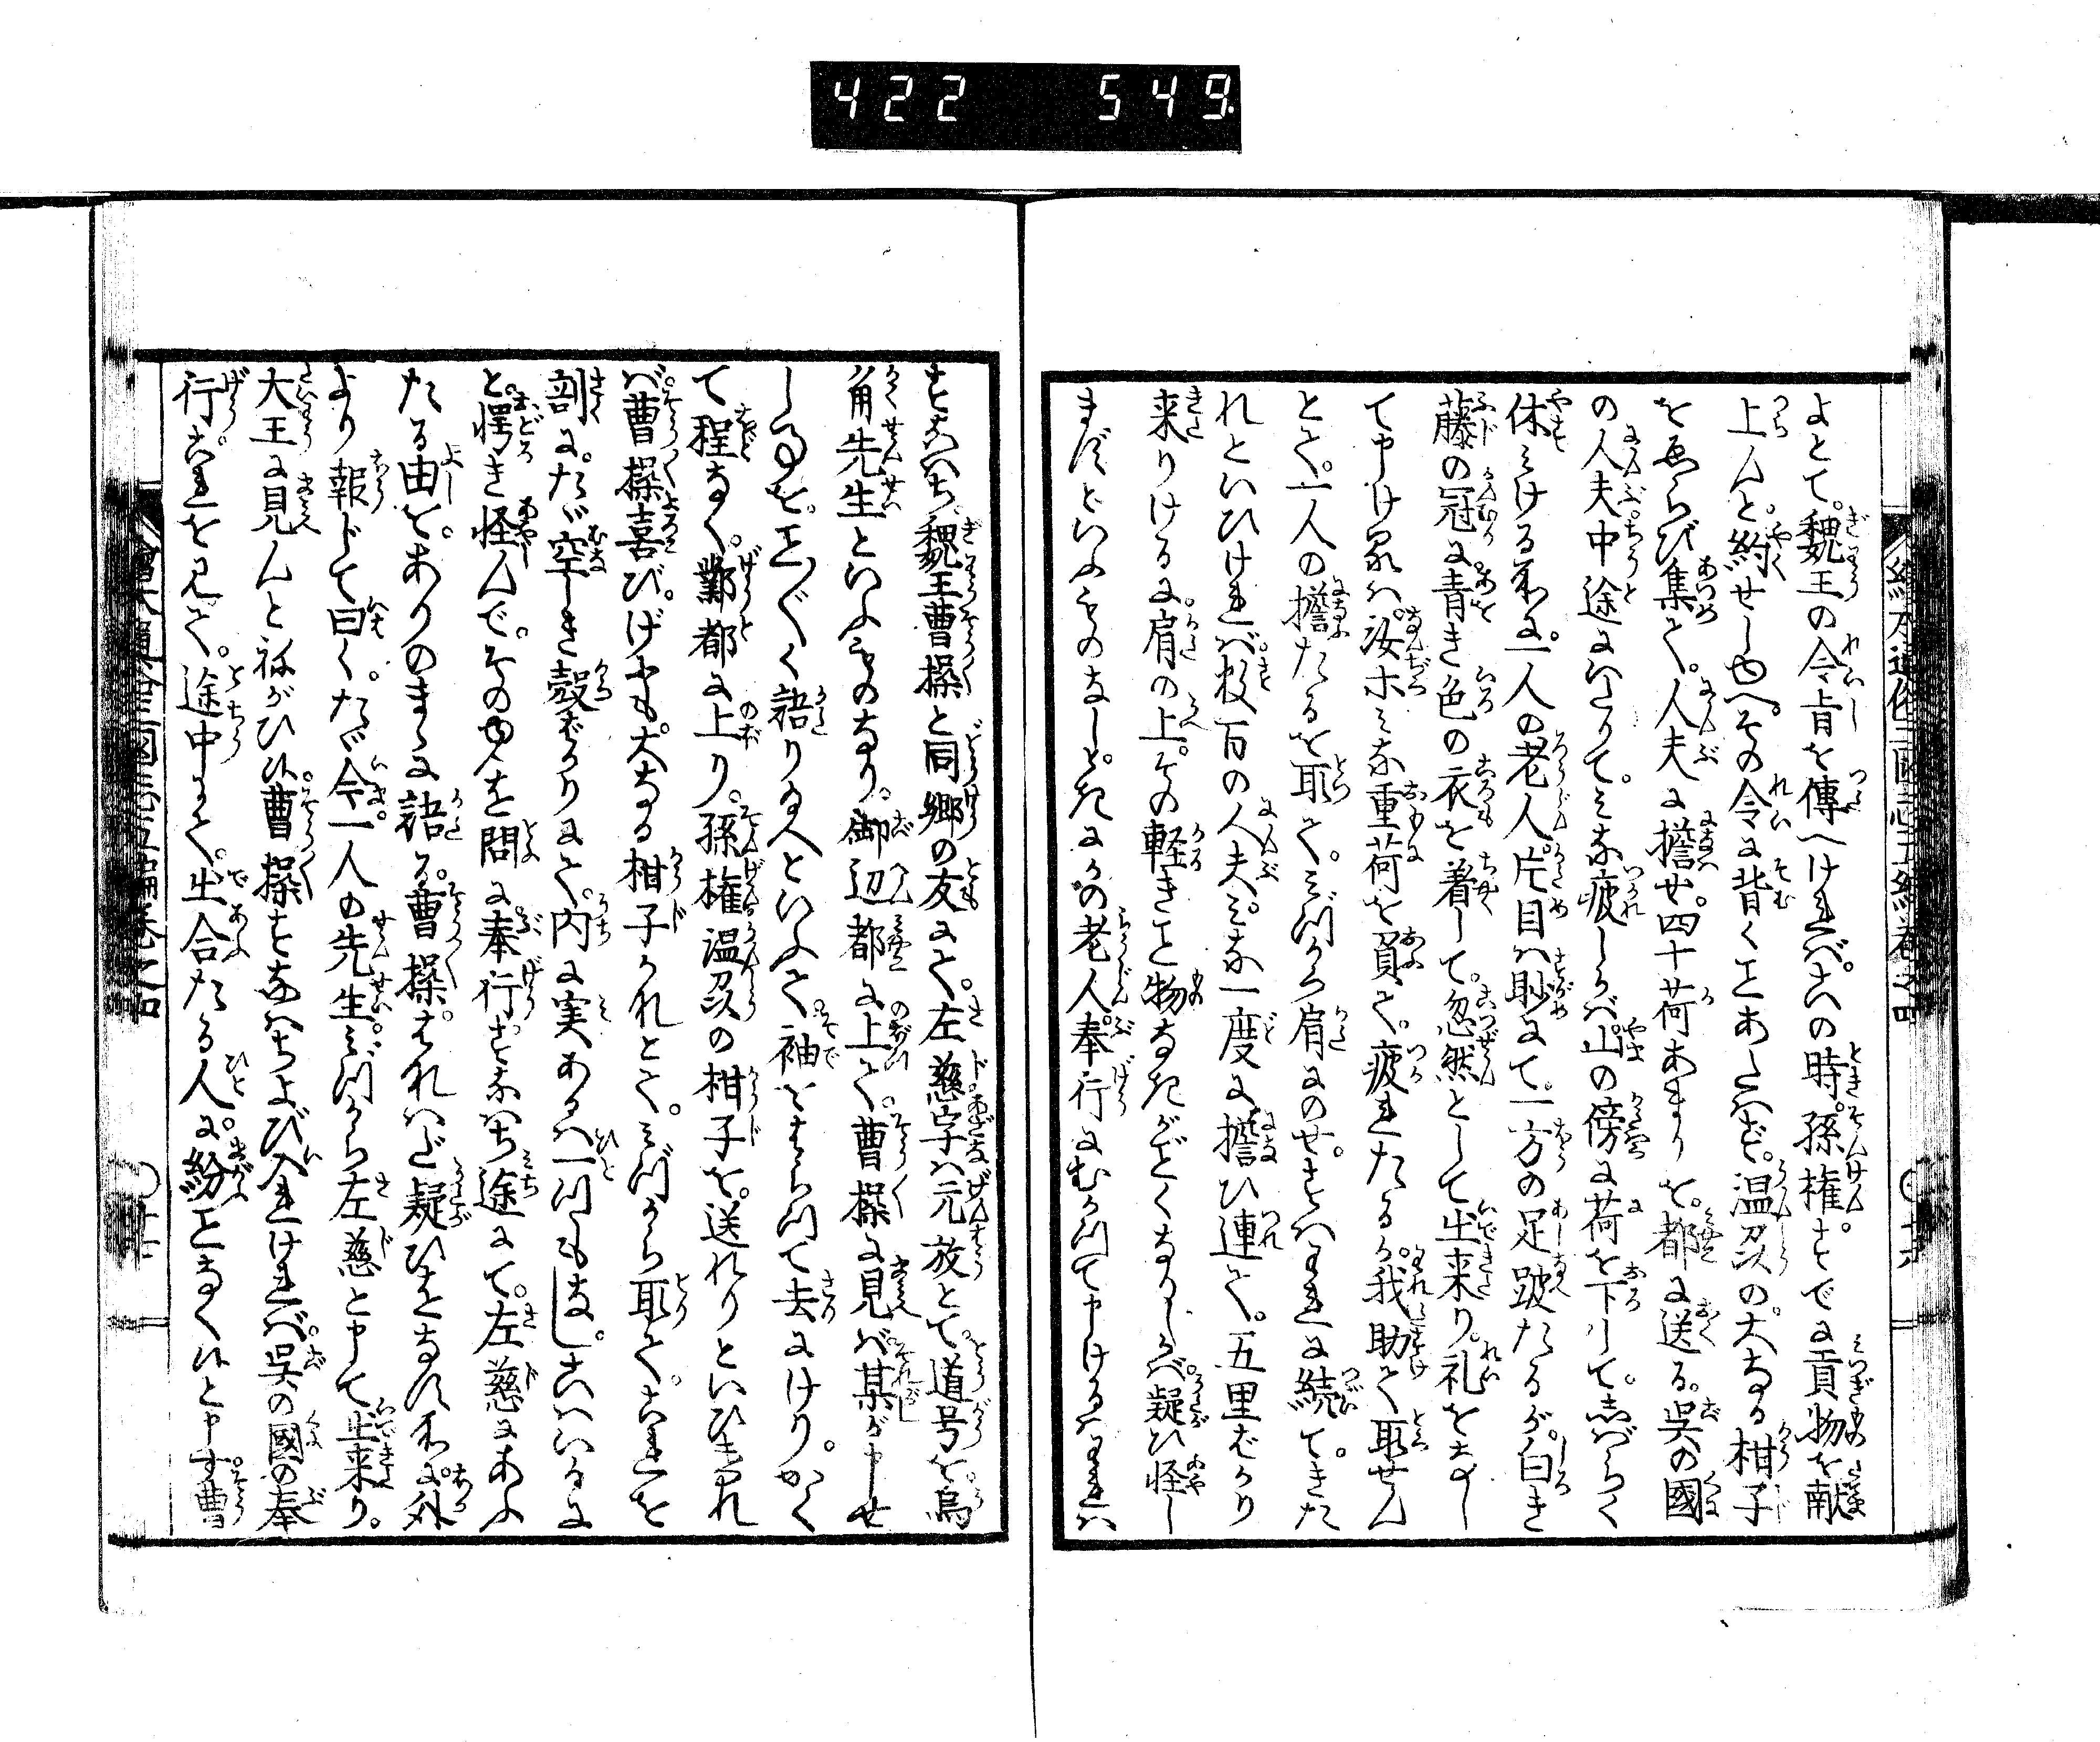 422 549
よとて。魏王の令旨を傳へければ。このの時。孫権。すでに貢物を献
上んと。約せしゆへ。その令に背くことあたはず。温州の大なる柑子
をゑらび集て。人夫に擔せ。四十荷あまりを。都に送る。呉の國
の人夫中途にいたりて。みな疲しかば。山の傍に荷を下して。しばらく
休みける所に。一人の老人。片目は眇にて。一方の足跛たるが。白き
藤の冠に。青き色の衣を着して。忽然として出来り。礼をなし
て申けるは。汝等みな重荷を負て。疲れたるか。我助て取せん
とて。一人の擔たるを取て。みづから肩にのせ。さらばわれに続て。きた
れといひければ。数百の人夫。みな一度に擔ひ連て。五里ばかり
来りけるに。肩の上。その軽きこと物なきがごとくなりしかば。疑ひ怪し
まずといふものなし。ときにかの老人。奉行にむかつて申けるはわれは
すなはち。魏王曹操と同郷の友にて。左慈字は元放とて。道号を。烏
角先生といふものなり。御辺都に上て。曹操に見ば。某が申せ
し事を。つぶさに語り給へといふて。袖をはらつて去にけり。かく
て程なく。鄴都に上り。孫権温州の柑子を。送れりといひ入れ
ば。曹操喜び。げにも。大なる柑子かなとて。みづから取て。これを
剖に。たゞ空しき殻ばかりにて。内に実あるは一つもなし。こはいかに
と。愕き怪んで。そのゆへを問に奉行。すなはち途にて。左慈にあふ
たる由を。ありのまゝに語る。曹操。これはど疑ひをなす所に。外
より報じて曰く。たゞ今。一人の先生。みづから左慈と申て出来り。
大王に見んと祢がひ候。曹操すなはちよび入ければ。呉の國の奉
行。これを見て。途中にて。出合たる人に。紛ことなく候と申す。曹